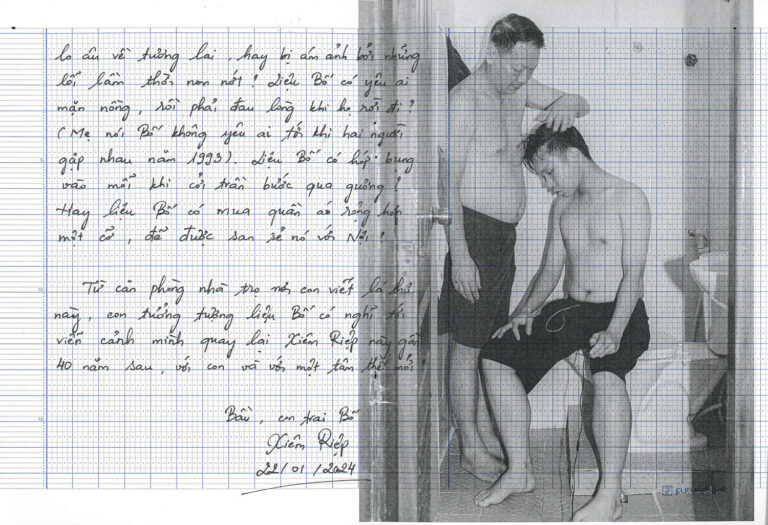 lo âu về tương lai, hay bị ám ảnh bởi những
lỗi lầm thời non nớt? Liệu Bố có yêu ai
mặn nồng, rồi phải đau lòng khi họ rời đi?
(Mẹ nói Bố không yêu ai tới khi hai người
gặp nhau năm 1993). Liệu Bố có hóp bụng
vào mỗi khi cởi trần bước qua gương?
Hay liệu Bố có mua quần áo rộng hơn
một cỡ, để được san sẻ nó với Nội?
Từ căn phòng nhà trọ nơi con viết lá thư
này, con tưởng tượng liệu Bố có nghĩ tới
viễn cảnh mình quay lại Xiêm Riệp này gần
40 năm sau, với con và với một tâm thế mới?
Bầu, con trai Bố
Xiêm Riệp
22/01/2024